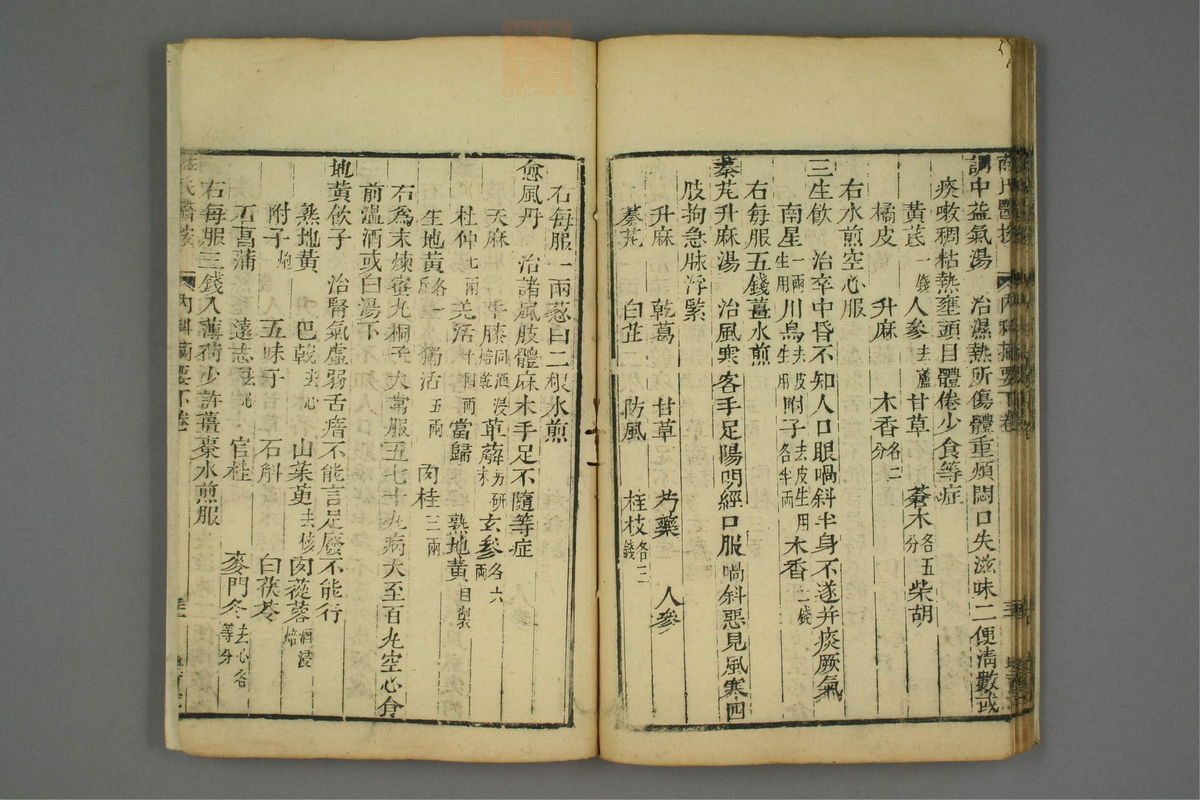 薛氏醫按　內科摘要下卷
調中益氣湯　治濕熱所傷體重煩悶口失滋味二便清數或
痰嗽稠粘熱壅頭目體倦少食等症
黃芪一錢　人參去蘆　甘草　蒼木各五分　柴胡
橘皮　升麻　木香各二分
右水煎空心服
三生飲　治卒中昏不知人口眼喎斜半身不遂并痰厥氣
南星一兩生用　川烏去皮生用　附子去皮生用各半兩　木香二錢
右每服五錢薑水煎
秦芃升麻湯　治風寒客手足陽明經口眼喎斜惡見風寒四
肢拘急脉浮緊
升麻　乾葛　甘草　芍藥　人參
秦芃　白芷　防風　桂枝各三錢
右每服一兩葱白二根水煎
愈風丹　治諸風肢體麻木手足不隨等症
天麻　牛膝同酒浸焙乾　萆薢另研末　玄參各六兩
杜仲七兩　羌活十四兩　當歸　熟地黃自製
生地黃各一斤　獨活五兩　肉桂三兩
右爲末煉蜜丸桐子大常服五七十丸病大至百丸空心食
前溫酒或白湯下
地黃飲子　治腎氣虛弱舌瘖不能言足廢不能行
熟地黃　巴戟去心　山茱萸去核　肉蓯蓉酒浸焙
附子炮　五味子　石斛　白茯苓
石菖蒲　遠志去心　官桂　麥門冬去心各等分
右每服三錢入薄荷少許薑棗水煎服
薛氏醫按　內科摘要下卷